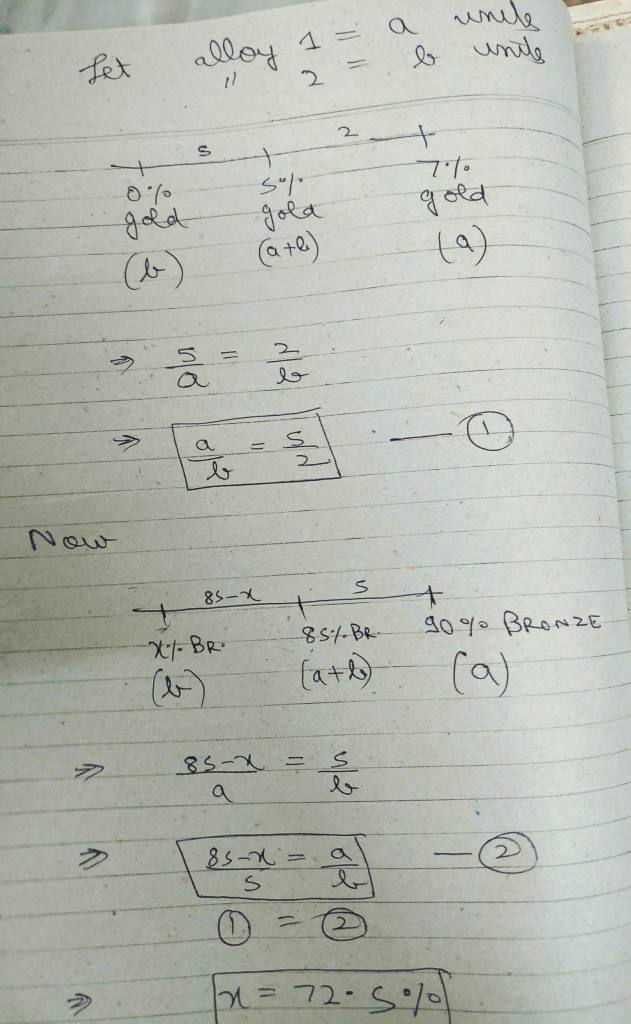 Let alloy 1 = a units
" 2 = b units
5 2
0% gold (b) 5% gold (a+b) 7% gold (a)
⇒ 5/a = 2/b
⇒ a/b = 5/2 — ①
Now
85-x 5
x% BR. (b) 85% BR. (a+b) 90% BRONZE (a)
⇒ 85-x/a = 5/b
⇒ 85-x/5 = a/b — ②
① = ②
⇒ x = 72.5%